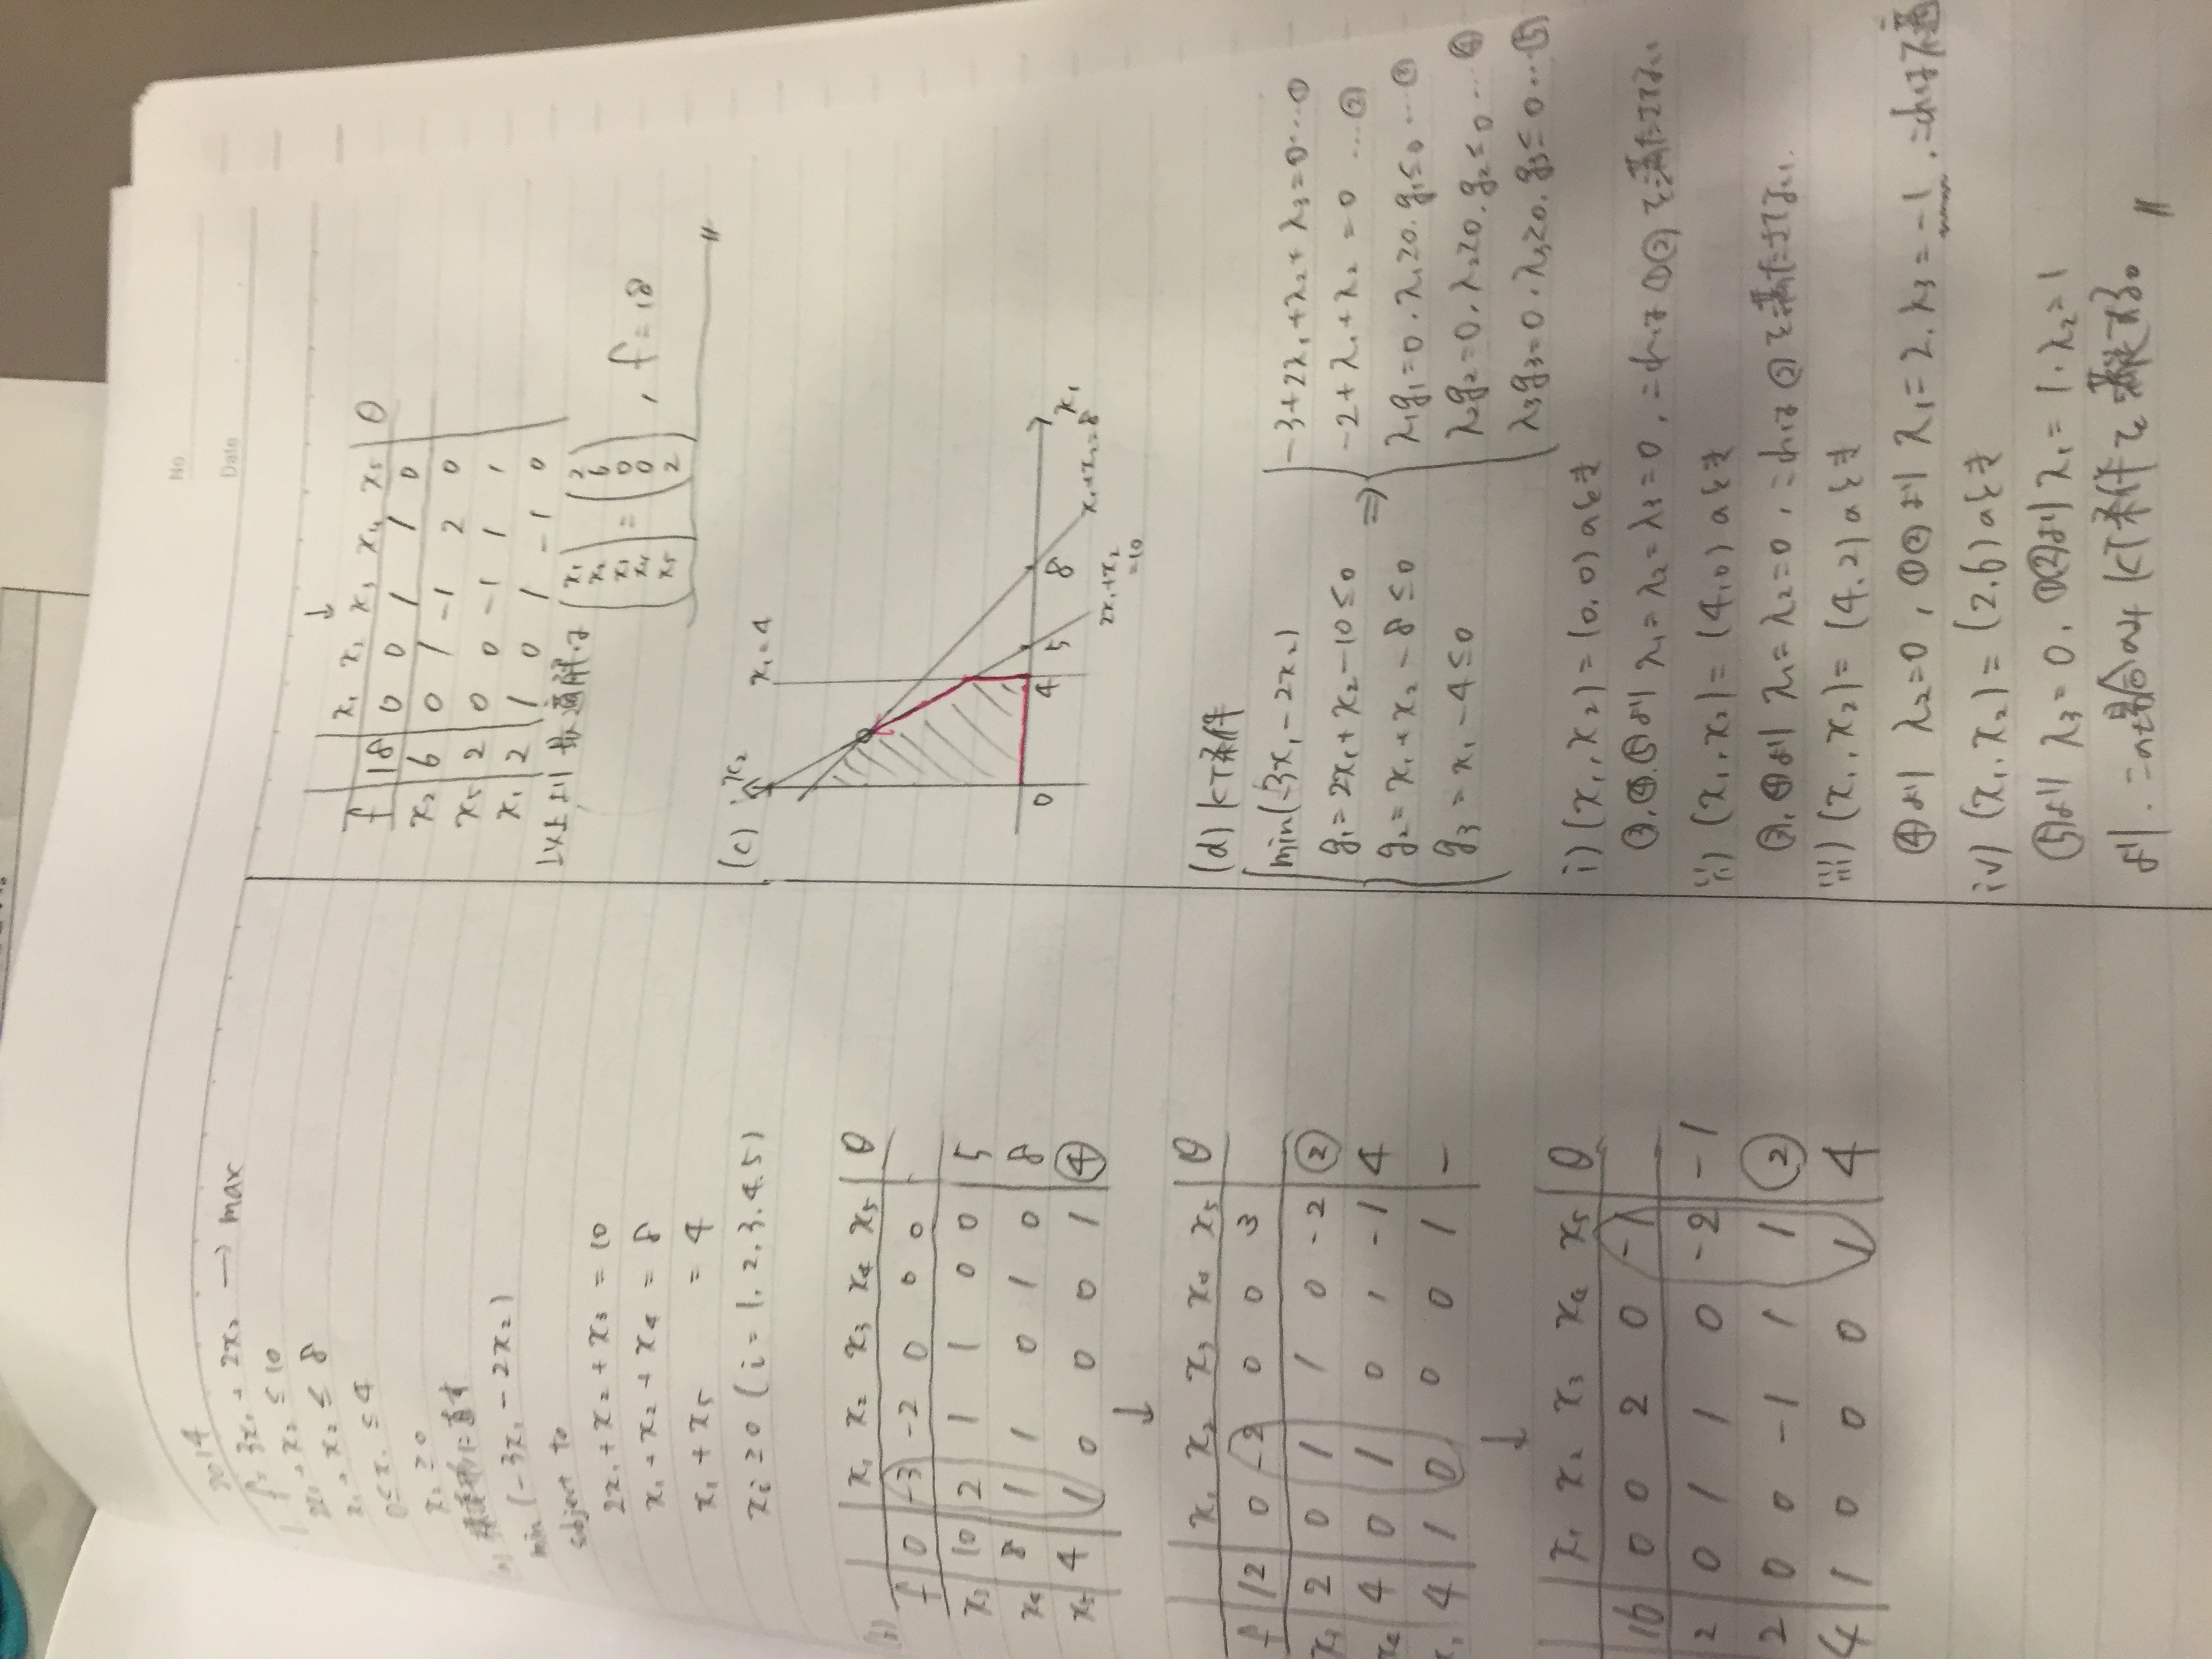 No
Date
2014
1. f = 3x₁ + 2x₂ → max
2x₁ + x₂ ≤ 10
x₁ + x₂ ≤ 8
0 ≤ x₁ ≤ 4
x₂ ≥ 0
(a) 標準形に直す
min (-3x₁ - 2x₂)
subject to
2x₁ + x₂ + x₃ = 10
x₁ + x₂ + x₄ = 8
x₁ + x₅ = 4
xᵢ ≥ 0 (i = 1. 2. 3. 4. 5)
(b)
x₁ x₂ x₃ x₄ x₅ θ
f 0 -3 -2 0 0 0 -
x₃ 10 2 1 1 0 0 5
x₄ 8 1 1 0 1 0 8
x₅ 4 1 0 0 0 1 ④
↓
x₁ x₂ x₃ x₄ x₅ θ
f 12 0 -2 0 0 3
x₃ 2 0 1 1 0 -2 ②
x₄ 4 0 1 0 1 -1 4
x₁ 4 1 0 0 0 1 -
↓
x₁ x₂ x₃ x₄ x₅ θ
16 0 0 2 0 -1
2 0 1 1 0 -2 -1
2 0 0 -1 1 1 ②
4 1 0 0 0 1 4
↓
x₁ x₂ x₃ x₄ x₅ θ
f 18 0 0 1 1 0
x₂ 6 0 1 -1 2 0
x₅ 2 0 0 -1 1 1
x₁ 2 1 0 1 -1 0
以上より 最適解は (x₁ x₂ x₃ x₄ x₅) = (2 6 0 0 2) , f = 18
(c) x₂
x₁ = 4
0 4 5 8 x₁
x₁ + x₂ = 8
2x₁ + x₂
= 10
(d) KT条件
min(-3x₁ - 2x₂) ⇒ -3 + 2λ₁ + λ₂ + λ₃ = 0 … ①
g₁ = 2x₁ + x₂ - 10 ≤ 0 -2 + λ₁ + λ₂ = 0 … ②
g₂ = x₁ + x₂ - 8 ≤ 0 λ₁g₁ = 0 . λ₁ ≥ 0. g₁ ≤ 0 … ③
g₃ = x₁ - 4 ≤ 0 λ₂g₂ = 0 . λ₂ ≥ 0. g₂ ≤ 0 … ④
λ₃g₃ = 0 . λ₃ ≥ 0. g₃ ≤ 0 … ⑤
i) (x₁, x₂) = (0, 0) のとき
③.④.⑤より λ₁ = λ₂ = λ₃ = 0 , これは①②を満たさない
ii) (x₁, x₂) = (4, 0) のとき
③, ④より λ₁ = λ₂ = 0 , これは②を満たさない.
iii) (x₁, x₂) = (4. 2) のとき
④より λ₂ = 0 , ①②より λ₁ = 2. λ₃ = -1 . これは不適
iv) (x₁. x₂) = (2. 6) のとき
⑤より λ₃ = 0. ①②より λ₁ = 1. λ₂ = 1
より. この場合のみ KT条件を満足する。